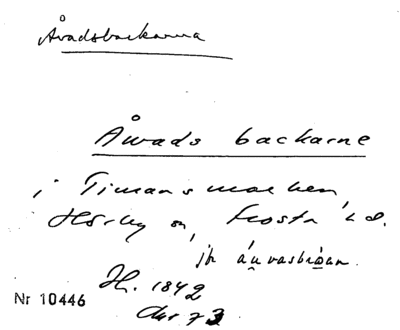 Åvadsbackarna
Åwads backarne
i Timansmarken
Hörby sn, Frosta h d.
jfr
H. 1842
Nr 10446
73